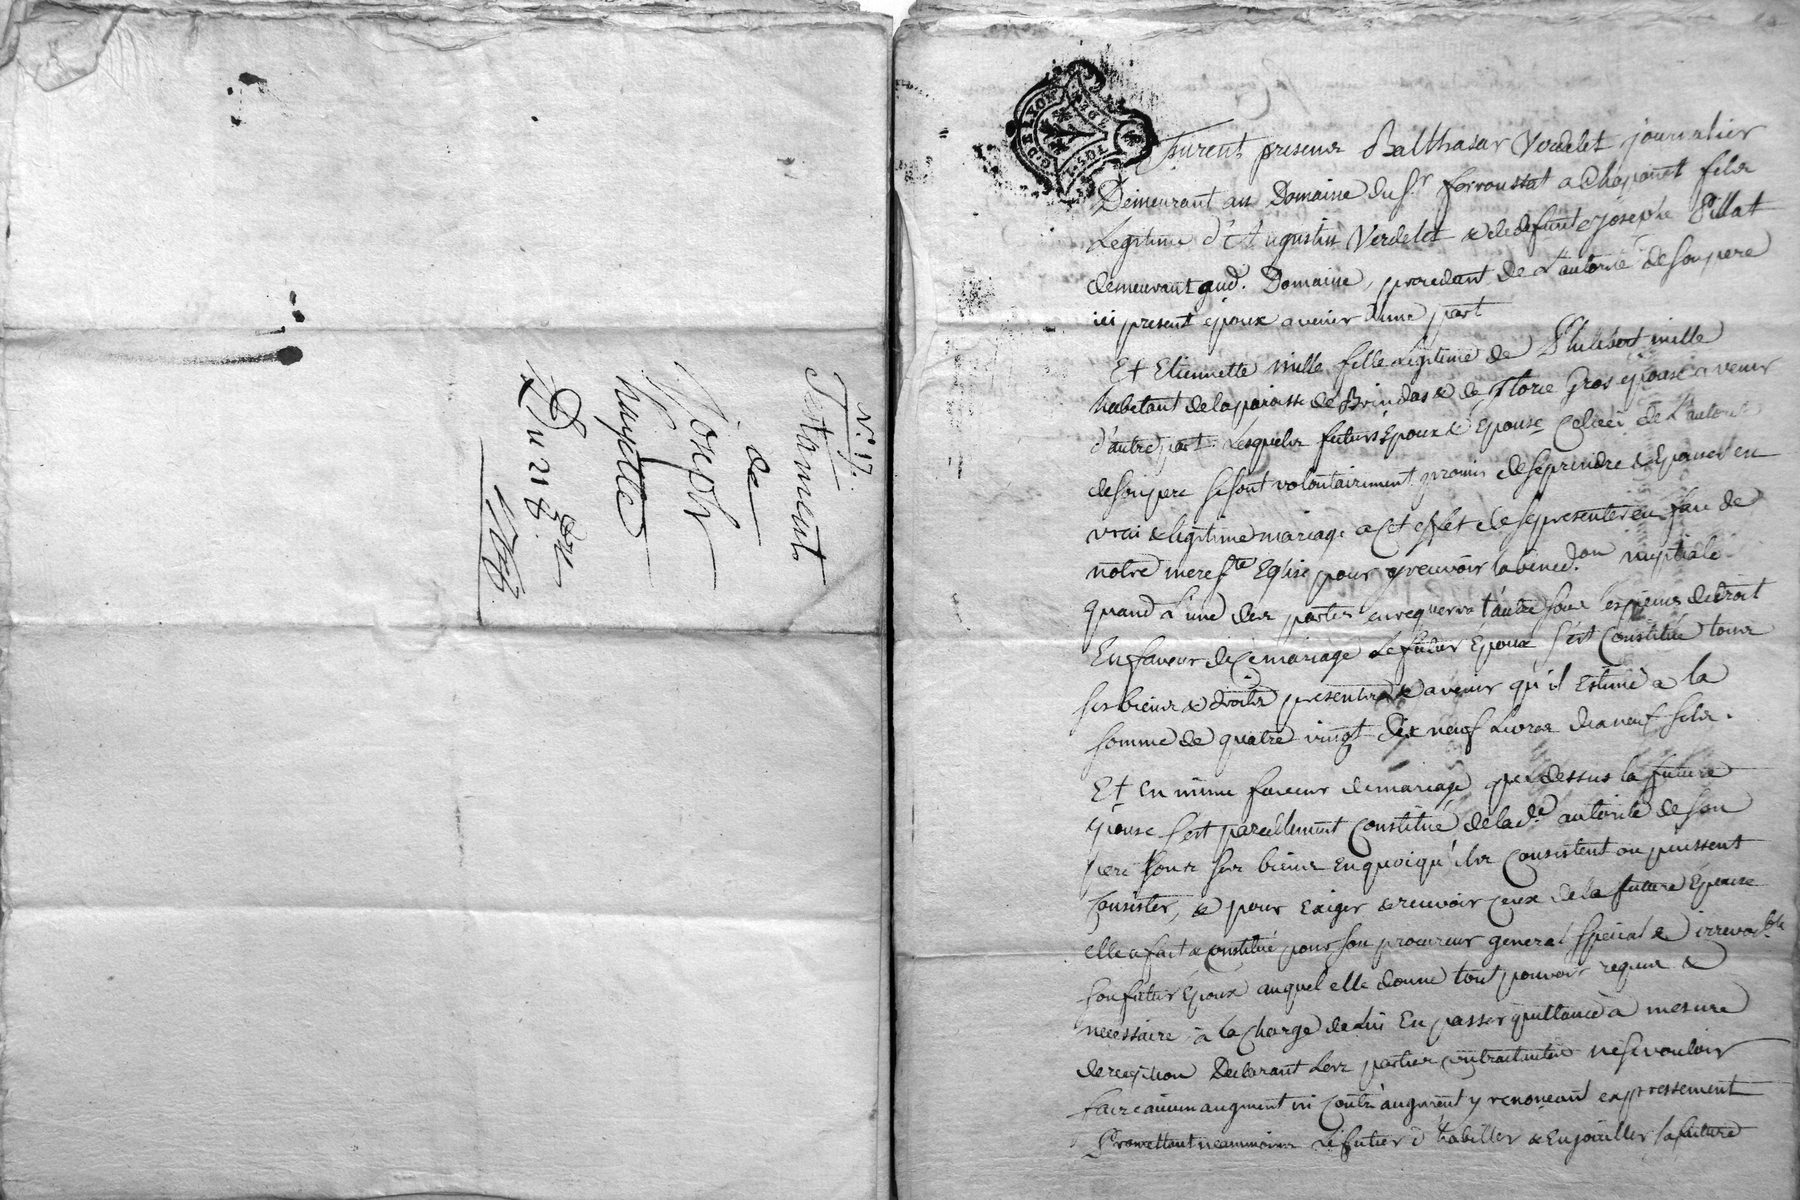 N.° 17.
Testament
de
Joseph
hayette
Du 27 8bre
Furent presens Balthasar Verdelet journalier
Demeurant au Domaine du S.r ferroussat a Chaponost fils
Legitime d'Augustin Verdelet & de defunte Josephe Pillat
demeurant aud. Domaine, procedant de L'autorité de son pere
ici present epoux a venir d'une part
Et Etiennette mille fille Legitime de Philibert mille
habitant de la paroisse de Brindas & de florie Gros epouse a venir
d'autre part. Lesquels futurs Epoux & Epouse Celleci de L'autorité
de son pere se sont volontairement promis de se prendre & Epouser en
vrai & legitime mariage a cet effet de se presenter en face de
notre mere Ste Eglise pour y recevoir la bened.on nuptiale
quand L'une des parties en requerera l'autre sous les peines de droit
En faveur de Ce mariage Le futur Epoux s'est Constitué tous
ses biens & droits presents & a venir qu'il Estime a la
somme de quatre vingt dix neuf Livres dix neuf sols.
Et en même faveur de mariage que dessus la future
Epouse s'est pareillement Constitué de la de autorité de son
pere tous ses biens En quoi qu'ils Consistent ou puissent
Consister, & pour Exiger & recevoir Ceux de la future Epouse
elle a fait & Constitué pour son procureur general special & irrevoc.ble
son futur Epoux auquel elle donne tout pouvoir requis &
necessaire à la Charge de Lui En passer quittance à mesure
de reception Declarant Les parties contractantes ne se vouloir
faire aucun augment ni Contr'augment y renonçant expressement
Promettant neanmoins Le futur d'habiller & Enjoailler la future